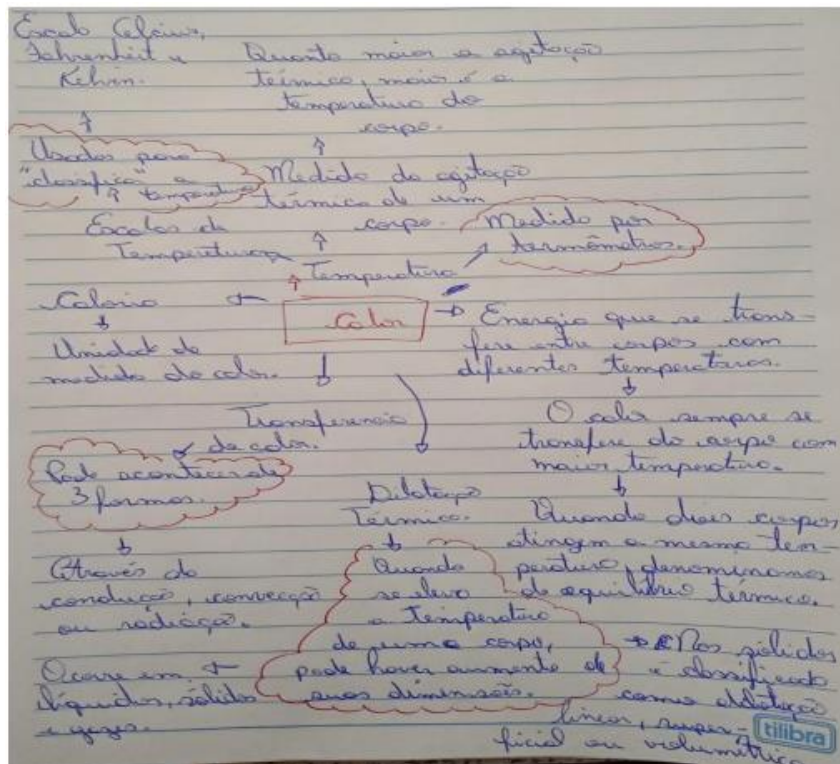 Escala Celcius,
Fahrenheit e
Kelvin.
Quanto maior a agitação
térmica, maior é a
temperatura do
corpo.
Usadas para
"classifica" a
temperatura
Medida da agitação
térmica de um
corpo.
Escalas de
Temperatura
Medida por
termômetros.
Temperatura
Caloria
Calor
Energia que se trans-
fere entre corpos com
diferentes temperaturas.
Unidade de
medida de calor.
Transferencia
de calor.
O calor sempre se
transfere do corpo com
maior temperatura.
Pode acontecer de
3 formas.
Dilatação
Térmica.
Quando dois corpos,
atingem a mesma tem-
peratura, denominamos
de equilíbrio térmico.
Através da
condução, convecção
ou radiação.
Quando
se eleva
a Temperatura
de uma corpo,
pode haver aumento de
suas dimensões.
Ocorre em
líquidos, sólidos
e gases.
Nos sólidos
é classificado
como dilatação
linear, super-
ficial ou volumétrica
tilibra